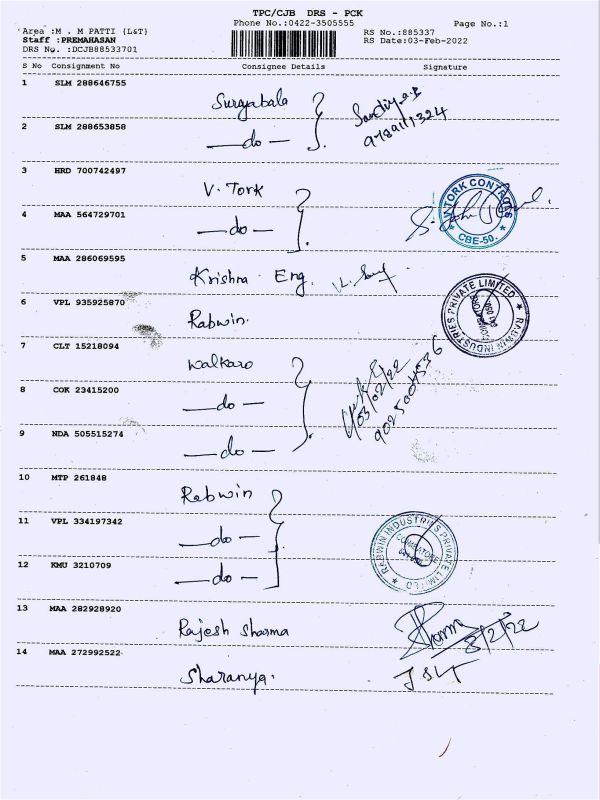 TPC/CJB DRS - PCK
Phone No.:0422-3505555
Page No.:1
Area :M . M PATTI {L&T}
RS No.:885337
Staff :PREMAHASAN
RS Date:03-Feb-2022
DRS No. :DCJB88533701
S No Consignment No Consignee Details Signature
1 SLM 288646755
Suryabala
2 SLM 288653858
-do-
3 HRD 700742497
V. Tork
4 MAA 564729701
-do-
V.TORK CONTROLS
CBE-50.
5 MAA 286069595
Krishna Eng.
6 VPL 935925870
Rabwin.
RABWIN INDUSTRIES PRIVATE LIMITED
7 CLT 15218094
Walkaro
8 COK 23415200
-do-
03/02/22
9 NDA 505515274
-do-
10 MTP 261848
Rabwin
11 VPL 334197342
-do-
12 KMU 3210709
-do-
RABWIN INDUSTRIES PRIVATE LIMITED
COIMBATORE
13 MAA 282928920
Rajesh Sharma
3/2/22
14 MAA 272992522
Sharanya.